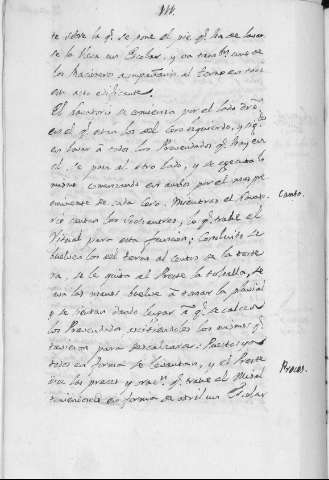 111.
te sobre la q.^e se pone el pie q.^e ha de lavar-
se la lleva un Escolar, y va tamb.^n uno de
los Racioneros acompañan al tiempo en todo
este acto edificante.
El Lavatorio se comienza por el lado dro,
en el q.^e estan los del Coro izquierdo, y sig.^e
en lavar à todos los Prevendados q.^e hay en
el se pasa al otro lado, y se egecuta lo
mismo comenzando en ambos por el mas pree
eminente de cada Coro. Mientras el Lavato-
rio cantan los Cantores, lo q.^e trahe el
Ritual para esta funcion; Concluido se
buelven los del terno al centro de la teste
ra, se le quita al Preste la tohalla, se
lava las manos buelve à tomar la pluvial
y se sientan dando lugar à q.^e se calcen
los Prevendados, asistiendolos los mismos q.^e
tuvieron para descalzarse: Puestos ya
todos en forma se levantan, y el Preste
dice las preces y orac.^n q.^e trahe el Ritual
teniendole en forma de atril un Escolar
Canto.
Preces.